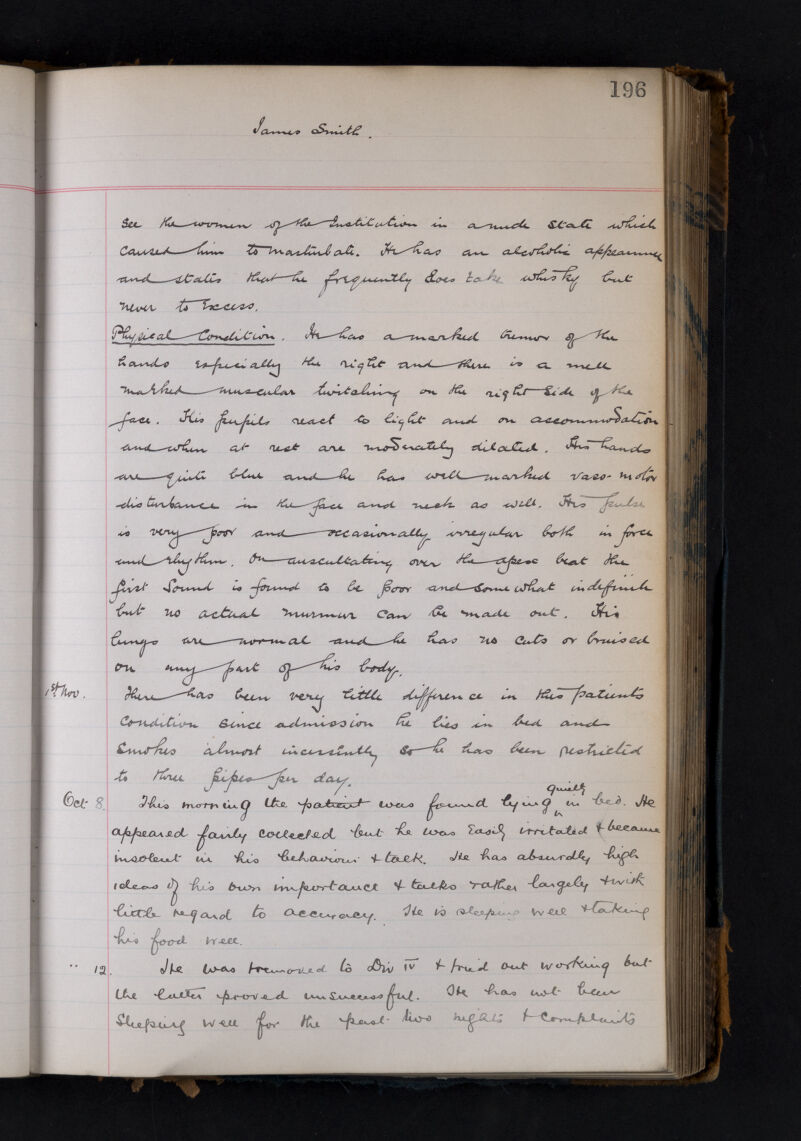 196
James Smith.
see the women of the Institution in a nude state which
caused him to masturbate. He has an alcoholic appearance
and states that he frequently does take whisky but
never to Excess.
Physical Condition. He has a marked tremor of the
hands especially the right and there is a well
marked muscular twitching on the right side of the
face. His pupils react to light and on accommodation
and when at rest are moderately dilated. His hands
are quite blue and he has well marked vaso-motor
disturbance in the face and neck as well. His pulse
is very poor and occasionally irregular both in force
and rhythm. On auscultating over the apex beat the
first sound is found to be poor and somewhat indefinite
but no actual murmur can be made out. His
lungs are normal and he has no cuts or bruised
on any part of his body.
1st Nov. There has been very little difference in this patients
condition since admission he lies in bed and
smokes almost incessently so he has been restricted
to three pipes per day.
Oct 8. This morning the patient was found lying quietly in bed. He
appeared fairly collected but he was easily irritated & became
insolent in his behaviour & talk. He has absurdly high
ideas of his own importance & talks rather largely & with
little regard to accuracy. He is sleeping well & taking
his food well.
" 12. He was removed to Div IV & tried out working but
the latter proved unsuccessful. He has not been
sleeping well for the past two nights & complaints